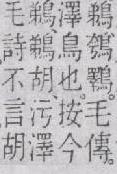 鵜鴮鸅。毛傳。
澤鳥也按今
鵜、鵜胡污澤
毛詩不言胡